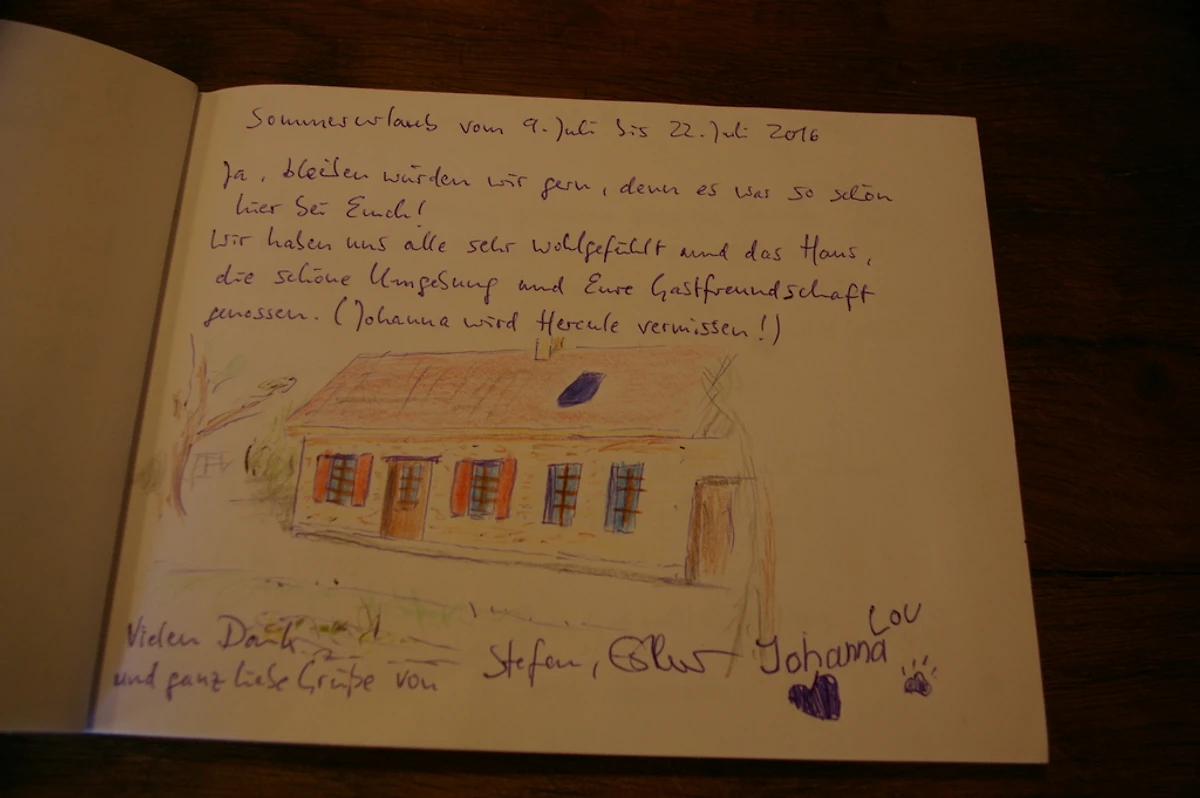 Sommerurlaub vom 9. Juli bis 22. Juli 2016
Ja, bleiben würden wir gern, denn es war so schön
hier bei Euch!
Wir haben uns alle sehr wohlgefühlt und das Haus,
die schöne Umgebung und Eure Gastfreundschaft
genossen. (Johanna wird Hercule vermissen!)
Vielen Dank
und ganz liebe Grüße von
Stefan, Johanna
Lou